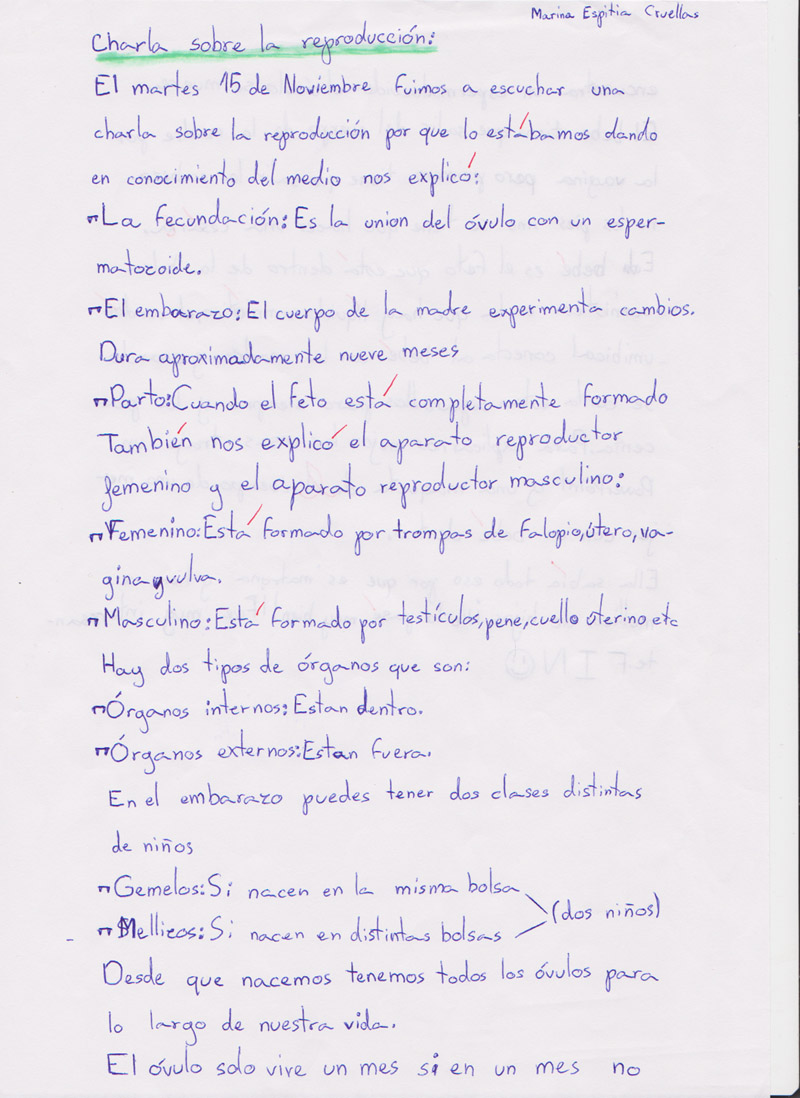 Marina Espitia Cruellas
Charla sobre la reproducción:
El martes 15 de Noviembre fuimos a escuchar una
charla sobre la reproducción por que lo estábamos dando
en conocimiento del medio nos explicó:
La fecundación: Es la union del óvulo con un esper-
matozoide.
El embarazo: El cuerpo de la madre experimenta cambios.
Dura aproximadamente nueve meses
Parto: Cuando el feto está completamente formado
También nos explicó el aparato reproductor
femenino y el aparato reproductor masculino:
Femenino: Está formado por trompas de Falopio, útero, va-
gina y vulva.
Masculino: Está formado por testículos, pene, cuello úterino etc
Hay dos tipos de órganos que son:
Órganos internos: Estan dentro.
Órganos externos: Estan fuera.
En el embarazo puedes tener dos clases distintas
de niños
Gemelos: Si nacen en la misma bolsa
(dos niños)
Mellizos: Si nacen en distintas bolsas
Desde que nacemos tenemos todos los óvulos para
lo largo de nuestra vida.
El óvulo solo vive un mes si en un mes no